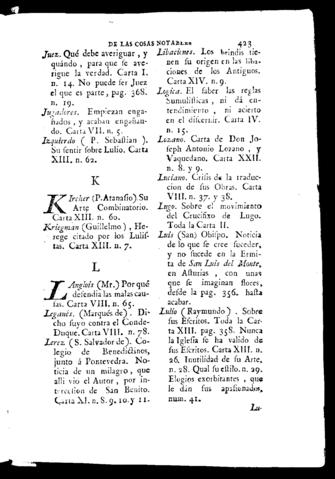 DE LAS COSAS NOTABLES 423
Juez. Qué debe averiguar, y
quándo, para que se ave-
rigue la verdad. Carta I.
n. 14. No puede ser Juez
el que es parte, pag. 368.
n. 19.
Jugadores. Empiezan enga-
ñados, y acaban engañan-
do. Carta VII. n. 5.
Izquierdo ( P. Sebastian ).
Su sentir sobre Lulio. Carta
XIII. n. 62.
K
Kircher (P. Atanasio) Su
Arte Combinatorio.
Carta XIII. n. 60.
Kriegman (Guillelmo), He-
rege citado por los Lulis-
tas. Carta XIII. n. 7.
L
Langlés (Mr.) Por qué
defendia las malas cau-
sas. Carta VIII. n. 65.
Leganés. (Marqués de). Di-
cho suyo contra el Conde-
Duque. Carta VIII. n. 78.
Lerez (S. Salvador de). Co-
legio de Benedictinos,
junto à Pontevedra. No-
ticia de un milagro, que
alli vio el Autor, por in-
tercesion de San Benito.
Carta XI. n. 8. 9. 10. y 11.
Libaciones. Los brindis tie-
nen su origen en las liba-
ciones de los Antiguos.
Carta XIV. n. 9.
Logica. El saber las reglas
Sumulisticas, ni dá en-
tendimiento, ni acierto
en el discurrir. Carta IV.
n. 15.
Lozano. Carta de Don Jo-
seph Antonio Lozano, y
Vaquedano. Carta XXII.
n. 8. y 9.
Luciano. Crisis de la traduc-
cion de sus Obras. Carta
VIII. n. 37. y 38.
Lugo. Sobre el movimiento
del Crucifixo de Lugo.
Toda la Carta II.
Luis (San) Obispo. Noticia
de lo que se cree suceder,
y no sucede en la Ermi-
ta de San Luis del Monte,
en Asturias, con unas
que se imaginan flores,
desde la pag. 356. hasta
acabar.
Lulio (Raymundo). Sobre
sus Escritos. Toda la Car-
ta XIII. pag. 358. Nunca
la Iglesia se ha valido de
sus Escritos. Carta XIII. n.
26. Inutilidad de su Arte,
n. 28. Qual su estilo. n. 29.
Elogios exorbitantes, que
le dán sus apasionados,
num. 41.
Lu-